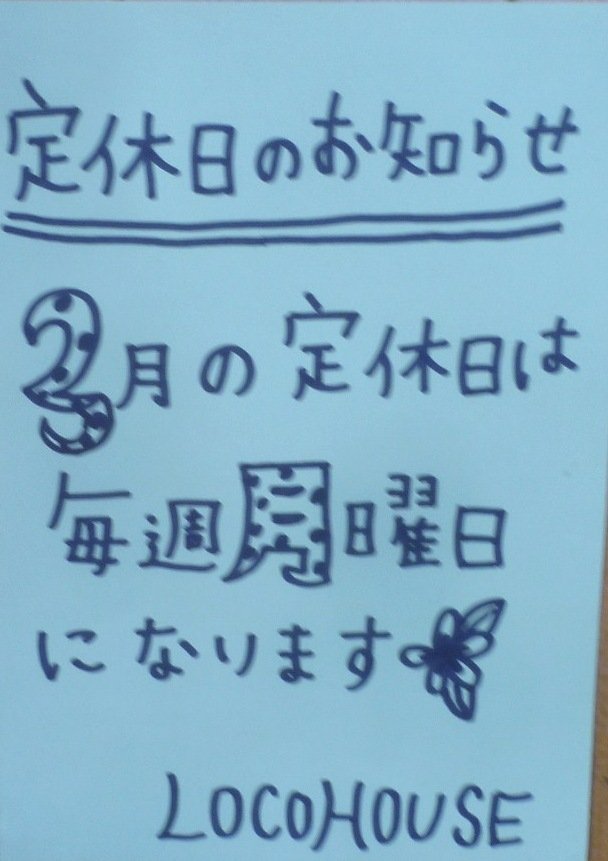 定休日のお知らせ
3月の定休日は
毎週月曜日
になります
LOCOHOUSE